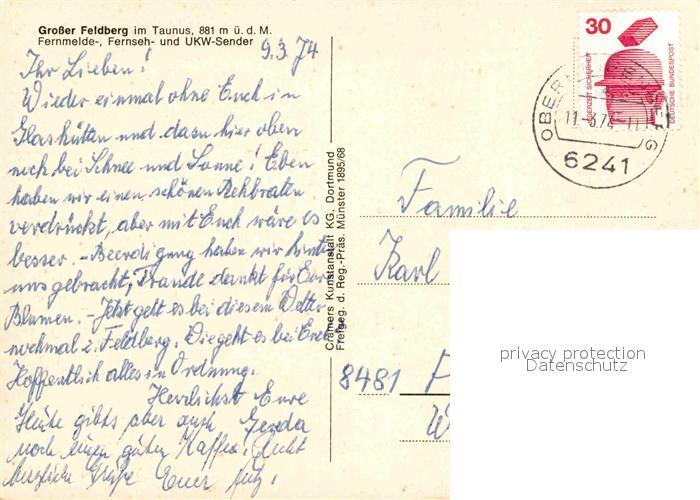 Großer Feldberg im Taunus, 881 m ü. d. M.
Fernmelde-, Fernseh- und UKW-Sender
9.3.74
Ihr Lieben!
Wieder einmal ohne Euch in
Glashütten und dazu hier oben
noch bei Schnee und Sonne! Eben
haben wir einen schönen Rehbraten
verdrückt, aber mit Euch wäre es
besser. - Beerdigung haben wir hinter
uns gebracht, Traude dankt für Eure
Blumen. - Jetzt geht es bei diesem Wetter
nochmal z. Feldberg. Wie geht es bei Euch?
Hoffentlich alles in Ordnung.
Herzlichst Eure
Heute gibts aber auch Gerda
noch einen guten Kaffee!
herzliche Grüße Euer
Cramers Kunstanstalt KG, Dortmund
Freigeg. d. Reg.-Präs. Münster 1895/68
30
JEDERZEIT SICHERHEIT
DEUTSCHE BUNDESPOST
11.-3.74-11
6241
Familie
Karl
8481
privacy protection
Datenschutz